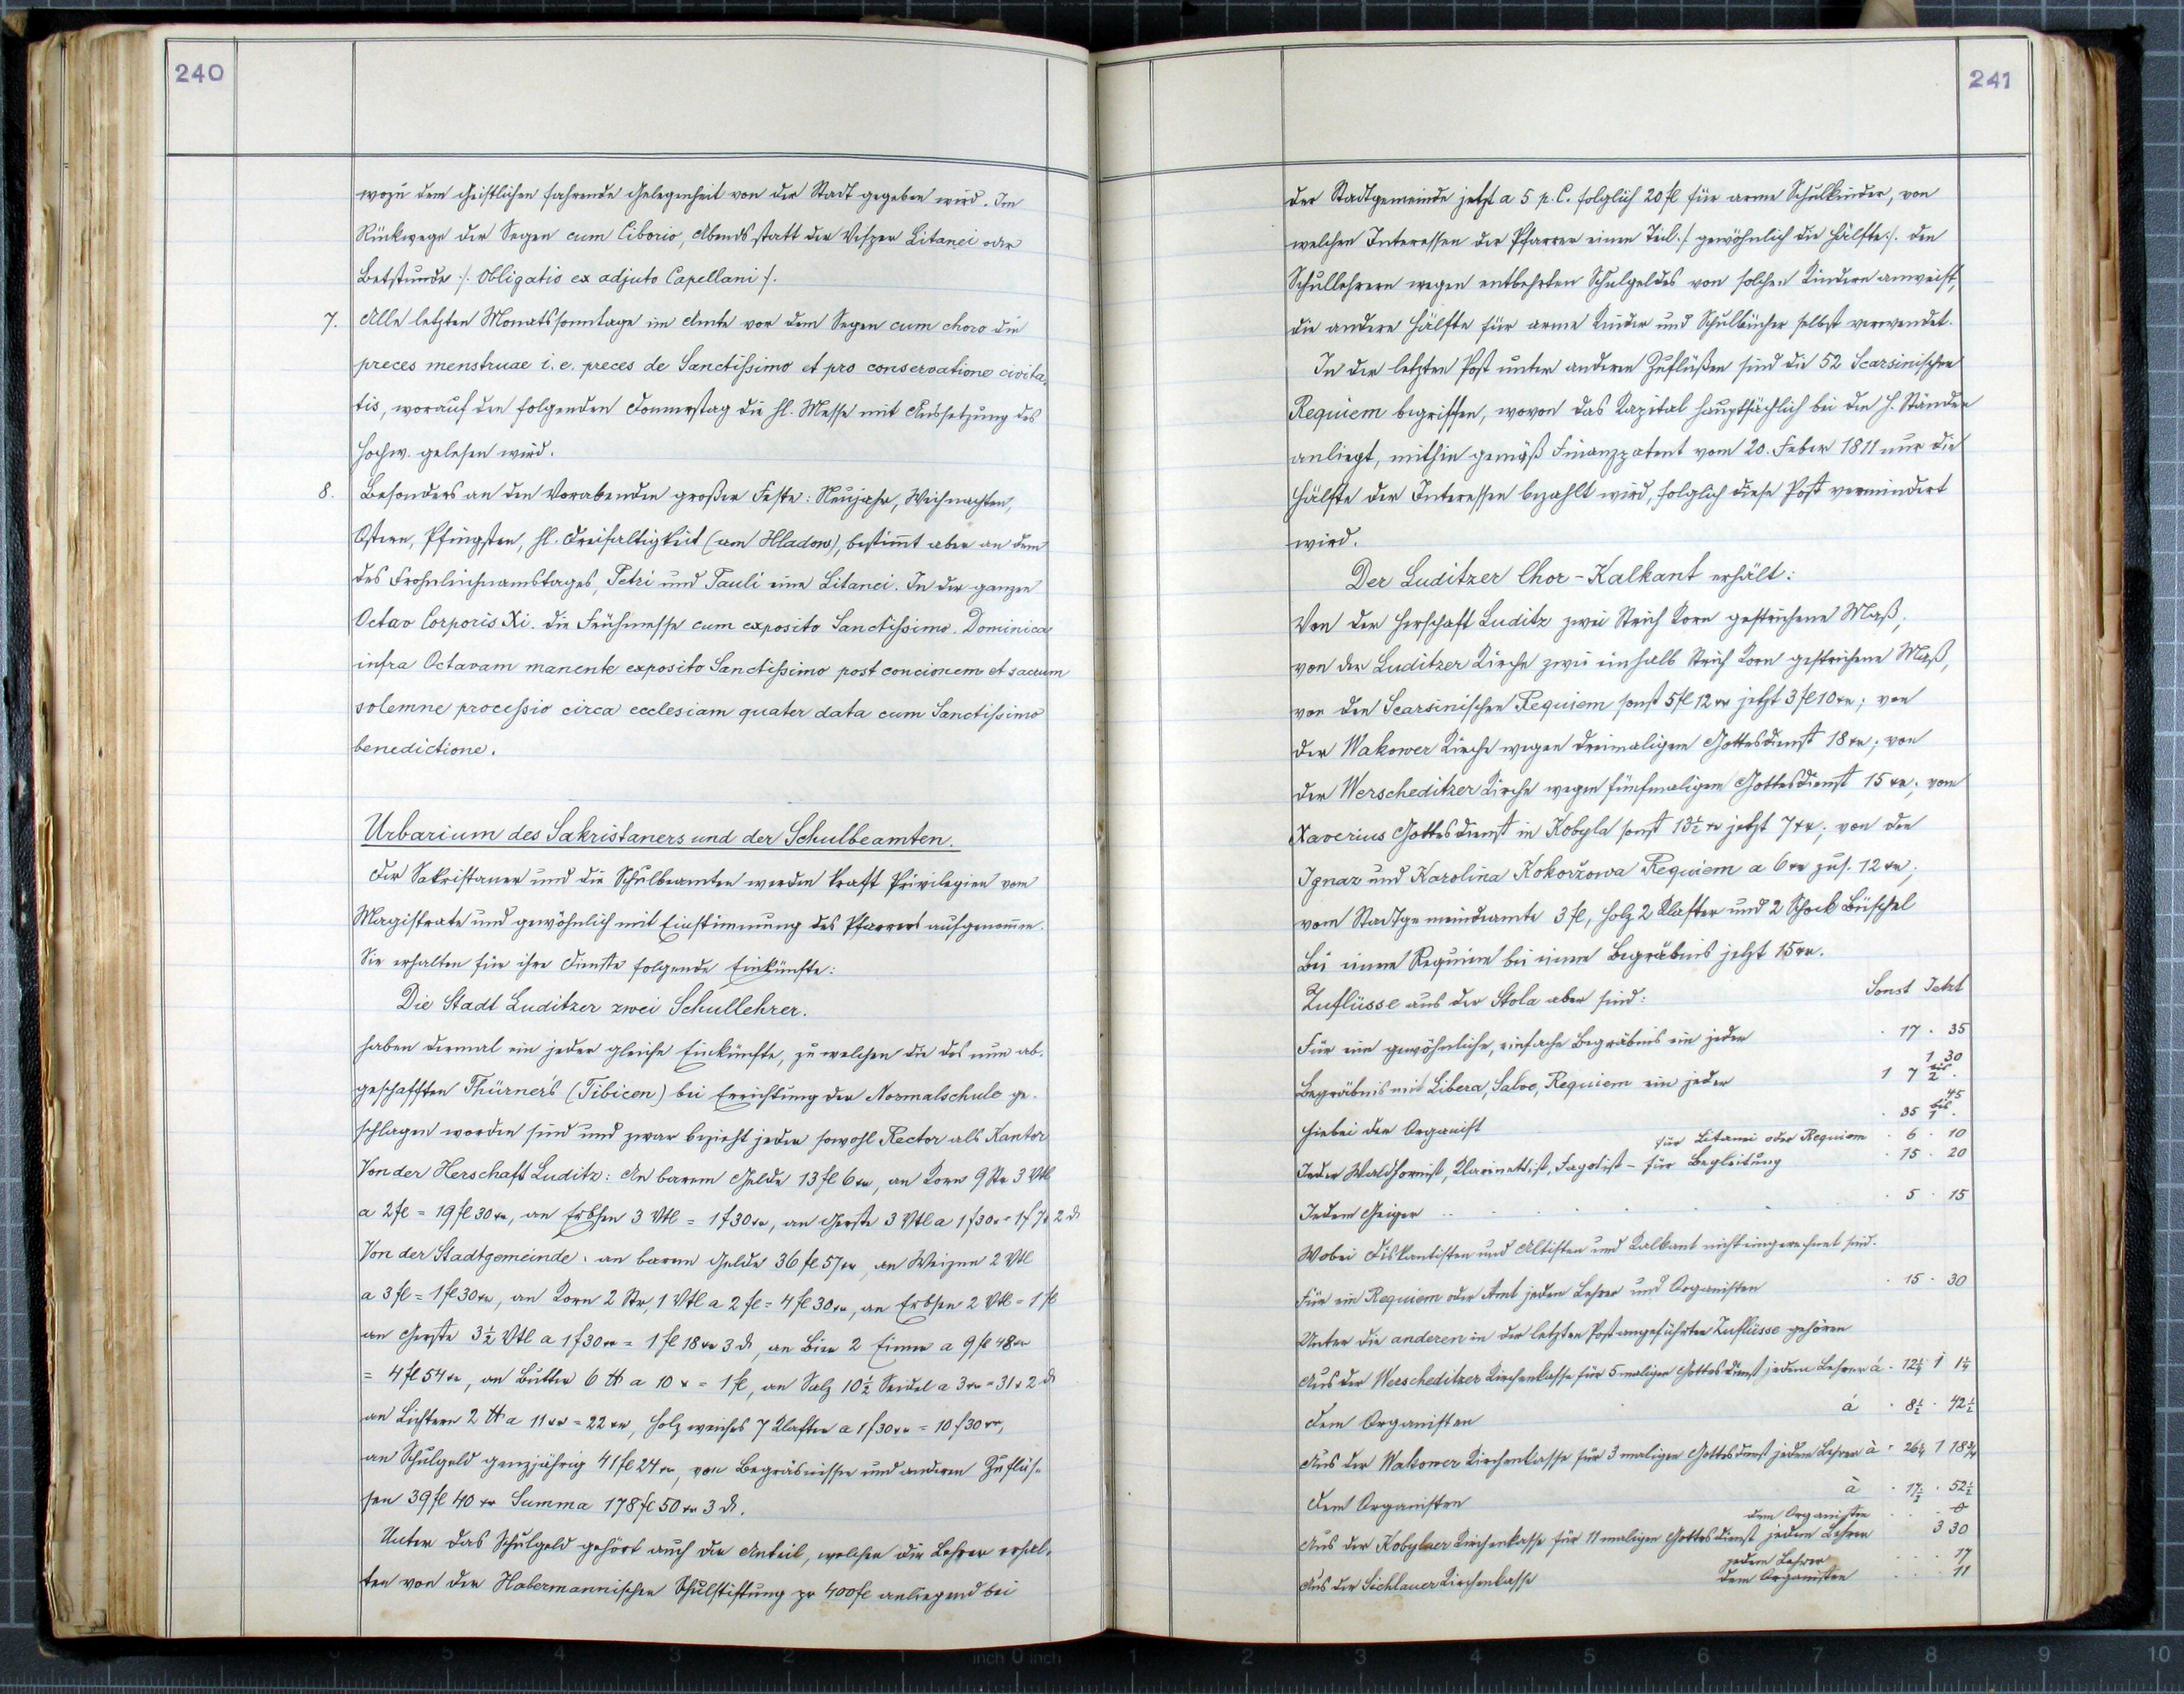 240
wozu dem Geistlichen fahrende Gelegenheit von der Stadt gegeben wird. Im
Rückwege der Segen cum Ciborio, Abends statt der Vesper Litanei oder
Betstunde /: Obligatio ex adjuto Capellani :/.
7. Alle letzten Monatssonntage im Amte vor dem Segen cum choro die
preces menstruae i. e. preces de Sanctißimo et pro conservatione civita-
tis, worauf den folgenden Donnerstag die hl. Messe mit Aussetzung des
Hochw. gelesen wird.
8. Besonders an den Vorabenden großer Feste: Neujahr, Weihnachten,
Ostern, Pfingsten, hl. Dreifaltigkeit (am Hladow), bestimt aber an dem
des Frohnleichnamstages, Petri und Pauli eine Litanei. In der ganzen
Octav Corporis Xi. die Frühmesse cum exposito Sanctißimo. Dominica
infra Octavam manente exposito Sanctißimo post concionem et sacrum
solemne proceßio circa ecclesiam quater data cum Sanctißimo
benedictione.
Urbarium des Sakristaners und der Schulbeamten.
Der Sakristaner und die Schulbeamten werden kraft Privilegien vom
Magistrate und gewöhnlich mit Einstimmung des Pfarrers aufgenomen.
Sie erhalten für ihre Dienste folgende Einkünfte:
Die Stadt Luditzer zwei Schullehrer.
haben dermal ein jeder gleiche Einkünfte, zu welchen die des nun ab-
geschafften Thürner's (Tibicen) bei Errichtung der Normalschule ge-
schlagen worden sind und zwar bezieht jeder sowohl Rector als Kantor
Von der Herschaft Luditz: An barem Gelde 13 fl 6 xr, an Korn 9 Str 3 Vtl
a 2 fl = 19 fl 30 xr, an Erbsen 3 Vtl = 1 f 30 xr, an Gerste 3 Vtl a 1 f 30 x = 1 f 7 x 2 d
Von der Stadtgemeinde: an barem Gelde 36 fl 57 xr, an Weizen 2 Vtl
a 3 fl = 1 fl 30 xr, an Korn 2 Str, 1 Vtl a 2 fl = 4 fl 30 xr, an Erbsen 2 Vtl = 1 fl
an Gerste 3 1/2 Vtl a 1 f 30 xr = 1 fl 18 xr 3 d, an Bier 2 Eimer a 9 fl 48 xr
= 4 fl 54 xr, an Butter 6 ℔ a 10 x = 1 fl, an Salz 10 1/2 Seidel a 3 xr = 31 x 2 d
an Lichtern 2 ℔ a 11 xr = 22 xr, Holz weiches 7 Klafter a 1 f 30 xr = 10 f 30 xr,
an Schulgeld ganzjährig 41 fl 24 xr, von Begräbnissen und anderen Zuflüs-
sen 39 fl 40 xr Summa 178 fl 50 xr 3 d.
Unter das Schulgeld gehört auch der Anteil, welchen die Lehrer erhal-
ten von der Habermannischen Schulstiftung pr 400 fl anliegend bei
241
der Stadtgemeinde jetzt a 5 p. C. folglich 20 fl für arme Schulkinder, von
welchen Interessen der Pfarrer einen Teil /: gewöhnlich die Hälfte :/. den
Schullehrern wegen entbehrten Schulgeldes von solchen Kindern anweist,
die andere Hälfte für arme Kinder und Schulbücher selbst verwendet.
In der letzten Post unter anderen Zuflüßen sind die 52 Scarsinischen
Requiem begriffen, wovon das Kapital hauptsächlich bei den H. Ständen
anliegt, mithin gemäß Finanzpatent vom 20. Feber 1811 nur die
Hälfte der Interessen bezahlt wird, folglich diese Post vermindert
wird.
Der Luditzer Chor-Kalkant erhält:
Von der Herschaft Luditz zwei Strich Korn gestrichene Maß,
von der Luditzer Kirche zwei einhalb Strich Korn gestrichene Maß,
von den Scarsinischen Requiem sonst 5 fl 12 xr jetzt 3 fl 10 xr; von
der Wakower Kirche wegen dreimaligem Gottesdienst 18 xr; von
der Werscheditzer Kirche wegen fünfmaligem Gottesdienst 15 xr; vom
Xaverius Gottesdienst in Kobyla sonst 13 1/2 xr jetzt 7 xr; von den
Ignaz und Karolina Kokoržowa Requiem a 6 xr zus. 12 xr;
vom Stadtgemeindeamte 3 fl, Holz 2 Klafter und 2 Schock Büschel
Bei einem Requiem bei einem Begräbnis jetzt 15 xr.
Zuflüsse aus der Stola aber sind: Sonst Jetzt
Für eine gewöhnliche, einfache Begräbnis ein jeder . 17 . 35
Begräbnis mit Libera, Salve, Requiem ein jeder 1 7 1 30 bis 2 .
Hiebei der Organist . 35 . 45 bis 1 .
Jeder Waldhornist, Klarinettist, Fagotist - für Litanei oder Requiem . 6 . 10
für Begleitung . 15 . 20
Jedem Geiger . 5 . 15
Wobei Diskantisten und Altisten und Kalkant nicht eingerechnet sind.
Für ein Requiem oder Amt jedem Lehrer und Organisten . 15 . 30
Unter die anderen in der letzten Post angeführten Zuflüsse gehören
Aus der Werscheditzer Kirchenkasse für 5 maligen Gottesdienst jedem Lehrer à . 12 1/4 1 1 1/4
dem Organisten à . 8 1/2 . 42 1/2
Aus der Wakower Kirchenkasse für 3 maligen Gottesdienst jedem Lehrer à . 26 1/4 1 18 3/4
dem Organisten à . 17 1/2 . 52 1/2
dem Organisten
Aus der Kobylaer Kirchenkasse für 11 maligen Gottesdienst jedem Lehrer 3 30
Aus der Sichlauer Kirchenkasse jedem Lehrer 17
dem Organisten 11